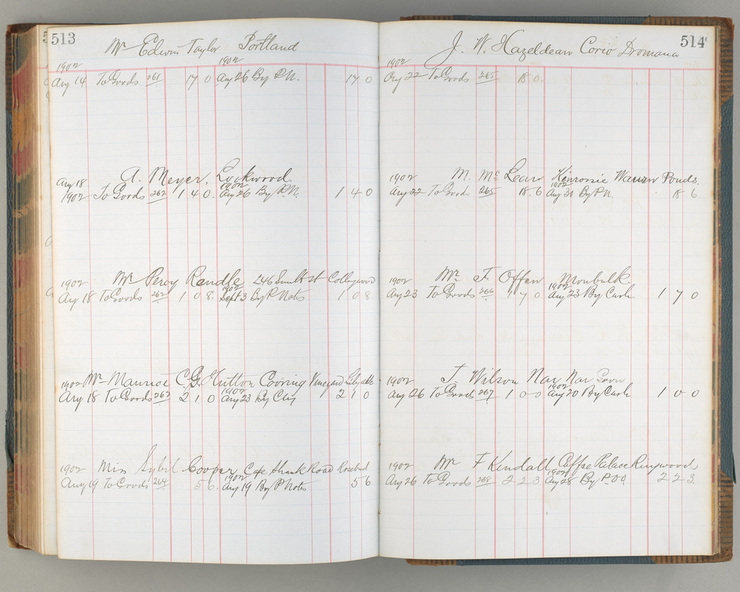 513
Mr Edwin Taylor Portland
1902 1902
Aug 14 To Goods 261 17 0 Aug 26 By P.N. 17 0
A. Meyer, Lockwood
Aug 18 1902
1902 To Goods 262 1 4 0 Aug 26 By P.N. 1 4 0
1902 Mr Percy Randle 246 Smith St Collingwood
1902
Aug 18 To Goods 262 1 0 8 Sept 3 By P Note 1 0 8
1902 Mr Maurice C.G. Hutton Vineyard
1902
Aug 18 To Goods 263 2 1 0 Aug 23 By Chq 2 1 0
1902 Miss Sybil Cooper, Road
1902
Aug 19 To Goods 264 5 6 Aug 19 By P Note 5 6
514
J. W. Hazeldean Corio Dromana
1902
Aug 22 To Goods 265 18 0
1902 M. McLean Ponds
1902
Aug 22 To Goods 265 18 6 Aug 30 By P.N. 18 6
1902 Mr F Offen Monbulk
1902
Aug 23 To Goods 266 1 7 0 Aug 23 By Cash 1 7 0
1902 T. Wilson Nar Nar Goon
1902
Aug 26 To Goods 267 1 0 0 Aug 20 By Cash 1 0 0
1902 Mr F Kendall Coffee Palace Ringwood
1902
Aug 26 To Goods 268 2 2 3 Aug 28 By P.O.O 2 2 3